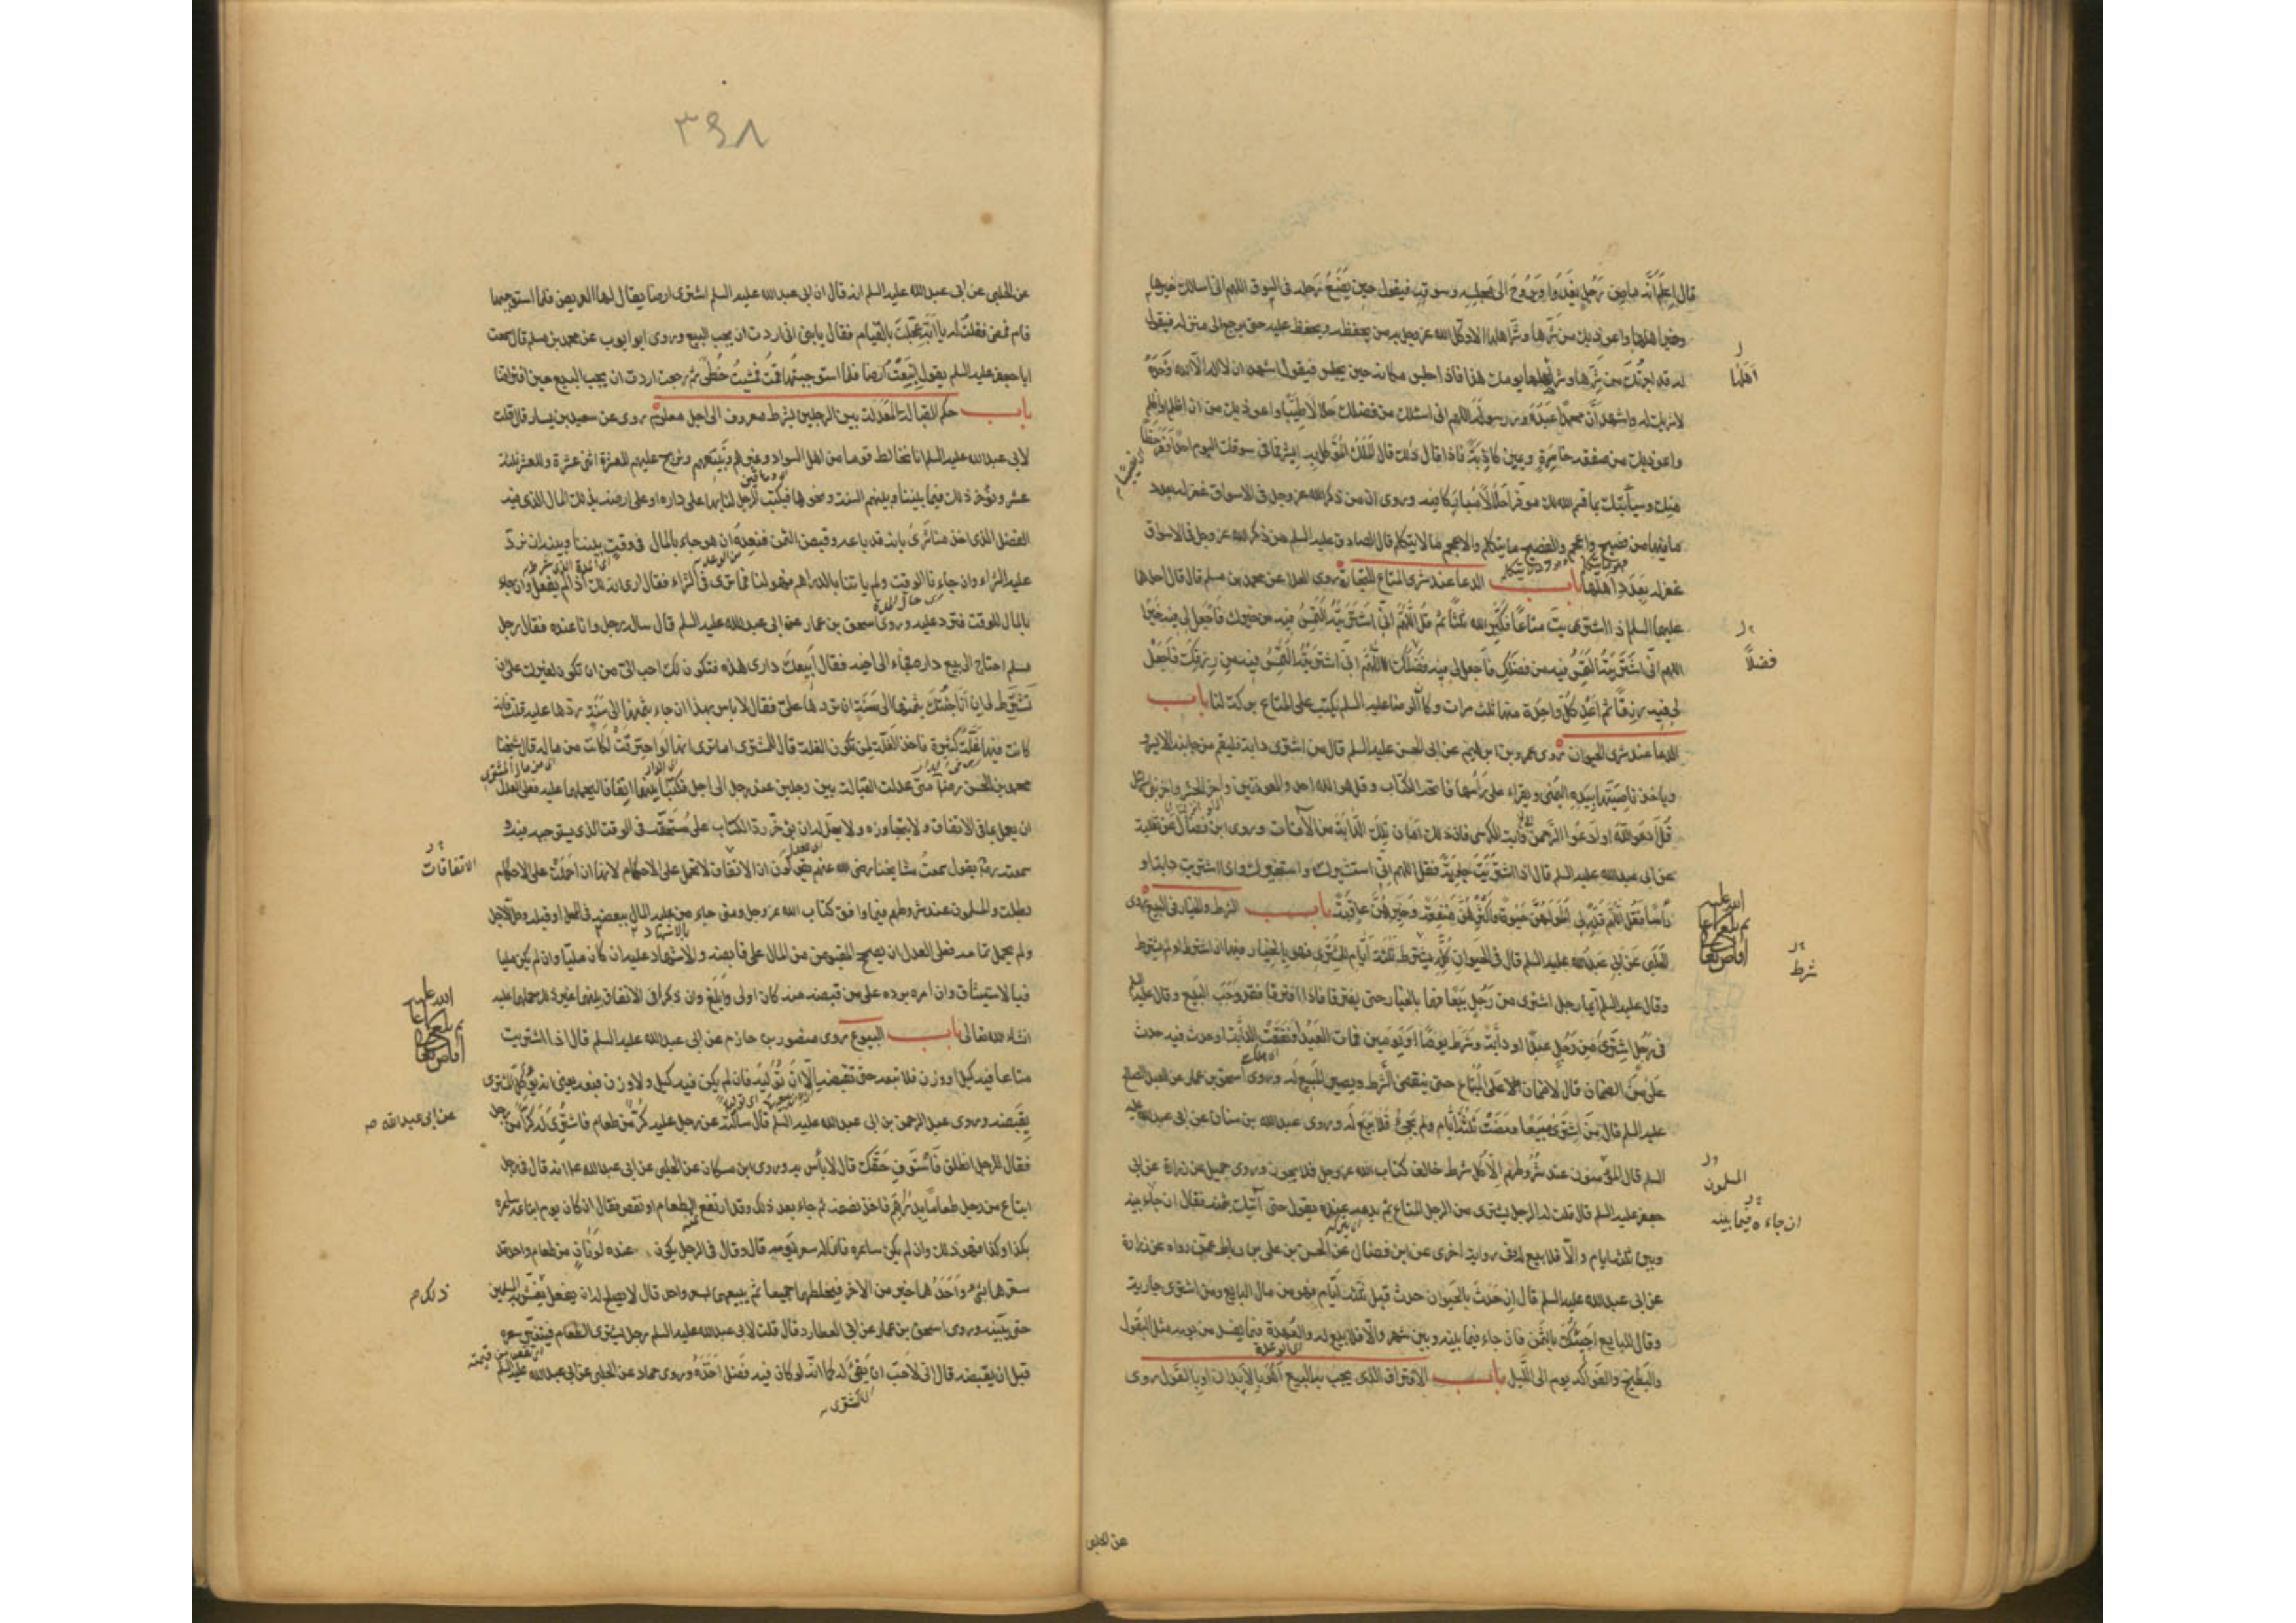 قال اعلم انه ما من رجل يغدو ويروح الى مجلسه وسوقه فيقول حين يضع رجله فى السوق اللهم انى اسالك خيرها
وخير اهلها واعوذ بك من شرها وشر اهلها الا وكل الله عز وجل به من يحفظه ويحفظ عليه حتى يرجع الى منزله فيقول
له قد اجرتك من شرها وشر اهلها يومك هذا فاذا جلس مكانه حين يجلس فيقول اشهد ان لا اله الا الله وحده
لا شريك له واشهد ان محمدا عبده ورسوله اللهم انى اسئلك من فضلك حلالا طيبا واعوذ بك من ان اظلم او اظلم
واعوذ بك من صفقه خاسرة ويمين كاذبة فاذا قال ذلك قال الملك الموكل به ابشر فما فى سوقك اليوم احد اوفر حظا
منك وسيأتيك ما قسم الله لك موفرا حلالا مباركا فيه وروى ان من ذكر الله عز وجل فى الاسواق غفر له بعدد
ما فيها من فصيح واعجم والفصيح ما يتكلم والاعجم ما لا يتكلم قال الصادق عليه السلم من ذكر الله عز وجل فى الاسواق
غفر له بعدد اهلها باب الدعا عند شرى المتاع للتجارة روى العلا عن محمد بن مسلم قال قال احدهما
عليهما السلم اذا اشتريت متاعا فكبر الله ثلثا ثم قل اللهم انى اشتريته التمس فيه من خيرك فاجعل لى فيه خيرا
اللهم انى اشتريته التمس فيه من فضلك فاجعل لى فيه فضلك اللهم انى اشتريته التمس فيه من رزقك فاجعل
لى فيه رزقا ثم اعد كل واحدة منها ثلث مرات وكان الرضا عليه السلم يكتب على المتاع بركة لنا باب
الدعا عند شرى الحيوان روى عمرو بن ابراهيم عن ابى الحسن عليه السلم قال من اشترى دابة فليقم من جانبه الايسر
وياخذ ناصيتها بيده اليمنى ويقراء على رأسها فاتحة الكتاب وقل هو الله احد والمعوذتين واخر الحشر واخر بنى اسرائيل
قل ادعوا الله او ادعوا الرحمن واية الكرسى فان ذلك امان تلك الدابة من الآفات وروى ابن فضال عن ثعلبة
عن ابى عبد الله عليه السلم قال اذا اشتريت جارية فقل اللهم انى استشيرك واستخيرك واذا اشتريت دابة او
رأسا فقل اللهم قدر لى اطولهن حيوة واكثرهن منفعة وخيرهن عاقبة باب الشرط والخيار فى البيع روى
الحلبى عن ابى عبد الله عليه السلم قال فى الحيوان كله يشترط ثلثة ايام للمشترى فهو بالخيار فيها ان اشترط او لم يشترط
وقال عليه السلم ايما رجل اشترى من رجل بيعا فهما بالخيار حتى يفترقا فاذا افترقا فقد وجب البيع وقال عليه السلم
فى رجل اشترى من رجل عبدا او دابة وشرط يوما او يومين فمات العبد او نفقت الدابة او حدث فيه حدث
على من الضمان قال لا ضمان على المبتاع حتى ينقضى الشرط ويصير المبيع له وروى اسحق بن عمار عن العبد الصالح
عليه السلم قال من اشترى بيعا ومضت ثلثة ايام ولم يجئ فلا بيع له وروى عبد الله بن سنان عن ابى عبد الله عليه
السلم قال المؤمنون عند شروطهم الا كل شرط خالف كتاب الله عز وجل فلا يجوز وروى جميل عن زرارة عن ابى
جعفر عليه السلم قال قلت له الرجل يشترى من الرجل المتاع ثم يدعه عنده يقول حتى آتيك بثمنه فقال ان جاء بينه
وبين ثلثه ايام والا فلا بيع له وفى رواية اخرى عن ابن فضال عن الحسن بن على بن رباط عمن رواه عن زرارة
عن ابى عبد الله عليه السلم قال ان حدث بالحيوان حدث قبل ثلثة ايام فهو من مال البايع ومن اشترى جارية
وقال للبايع اجيئك بالثمن فان جاء فيما بينه وبين شهر والا فلا بيع له والعهدة فيما يفسد من يومه مثل البقول
والبطيخ والفواكه يوم الى الليل باب الافتراق الذى يجب به البيع أهو بالابدان او بالقول روى
اهلها
فضلا
شرط
المسلمون
ان جاء فيما بينه
عن الحلبى
٣٩٨
عن الحلبى عن ابى عبد الله عليه السلم انه قال ان ابى عبد الله عليه السلم اشترى ارضا يقال لها العريض فلما استوجبها
قام فمضى فقلت له يا ابة عجلت بالقيام فقال يا بنى انى اردت ان يجب البيع وروى ابو ايوب عن محمد بن مسلم قال سمعت
ابا جعفر عليه السلم يقول ابتعت ارضا فلما استوجبتها قمت فمشيت خطى ثم رجعت اردت ان يجب البيع حين افترقنا
باب حكم القبالة المعدلة بين الرجلين بشرط معروف الى اجل معلوم روى عن سعيد بن يسار قال قلت
لابى عبد الله عليه السلم انا نخالط قوما من اهل السواد وغيرهم فنبيعهم ونربح عليهم للعشرة اثنى عشرة وللعشرة ثلثة
عشر ونؤخر ذلك فيما بيننا وبينهم السنة ونحوها فيكتب الرجل لنا بها على داره او على ارضه بذلك المال الذى فيه
الفضل الذى اخذ منا شرى بانه قد باعه وقبض الثمن فنعده ان هو جاء بالمال فى وقت بيننا وبينه ان نرد
عليه الشراء وان جاءنا الوقت ولم ياتنا بالدراهم فهو لنا فما ترى فى الشراء فقال ارى انه لك اذا لم يفعل وان جاء
بالمال للوقت فترد عليه وروى اسحق بن عمار عن ابى عبد الله عليه السلم قال ساله رجل وانا عنده فقال رجل
مسلم احتاج الى بيع داره فجاء الى اخيه فقال ابيعك دارى هذه فتكون لك احب الى من ان تكون لغيرك على ان
تشترط لى ان انا جئتك بثمنها الى سنة ان تردها على فقال لا باس بهذا ان جاء بثمنها الى سنة ردها عليه قلت فانه
كانت فيها غلة كثيرة فاخذ الغلة لمن تكون الغلة قال للمشترى اما ترى انها لو احترقت لكانت من ماله قال شيخنا
محمد بن الحسن رضه متى عدلت القبالة بين رجلين عند رجل الى اجل فكتبا بينهما اتفاقا ليحملهما عليه فعلى العدل
ان يعمل بما فى الاتفاق ولا يتجاوزه ولا يحل له ان يؤخر رد الكتاب على مستحقه فى الوقت الذى يستوجبه فيه
سمعته ره يقول سمعت مشايخنا رضى الله عنهم يقولون ان الاتفاق لا تحمل على الاحكام لانها ان احملت على الاحكام
بطلت والمسلمون عند شروطهم فيما وافق كتاب الله عز وجل ومتى جاء من عليه المال ببعضه فى المحل او قبله وحل الاجل
ولم يحمل تمامه فعلى العدل ان يصحح المقبوض من المال على قابضه والاشهاد عليه ان كان مليا وان لم يكن مليا
فبالاستيثاق وان امره برده على من قبضه منه كان اولى وابلغ وان ذكر فى الاتفاق بينهما غير ذلك حملهما عليه
انشاء الله تعالى باب البيوع روى منصور بن حازم عن ابى عبد الله عليه السلم قال اذا اشتريت
متاعا فيه كيل او وزن فلا تبعه حتى تقبضه الا ان توليه فان لم يكن فيه كيل ولا وزن فبعه يعنى انه يوكل المشترى
يقبضه وروى عبد الرحمن بن ابى عبد الله عليه السلم قال سالته عن رجل عليه كر من طعام فاشترى له كرا من رجل
فقال للرجل انطلق فاستوف حقك قال لا بأس به وروى ابن مسكان عن الحلبى عن ابى عبد الله ع انه قال فى رجل
ابتاع من رجل طعاما بدراهم فاخذ نصفه ثم جاء بعد ذلك وقد ارتفع الطعام او نقص فقال ان كان يوم ابتاعه ساعره
بكذا وكذا فهو ذلك وان لم يكن ساعره فانما له سعر يومه قال وقال فى الرجل يكون عنده لونان من طعام واحد قد
سعرهما بشئ واحدهما خير من الاخر فيخلطهما جميعا ثم يبيعهما بسعر واحد قال لا يصلح له ان يفعل يغش به المسلمين
حتى يبينه وروى اسحق بن عمار عن ابى العطارد قال قلت لابى عبد الله عليه السلم رجل يشترى الطعام فيتغير سعره
قبل ان يقبضه قال انى لاحب ان يفى له كما انه لو كان فيه فضل اخذه وروى حماد عن الحلبى عن ابى عبد الله عليه السلم
الاتفاقات
عن ابى عبد الله
ذلك